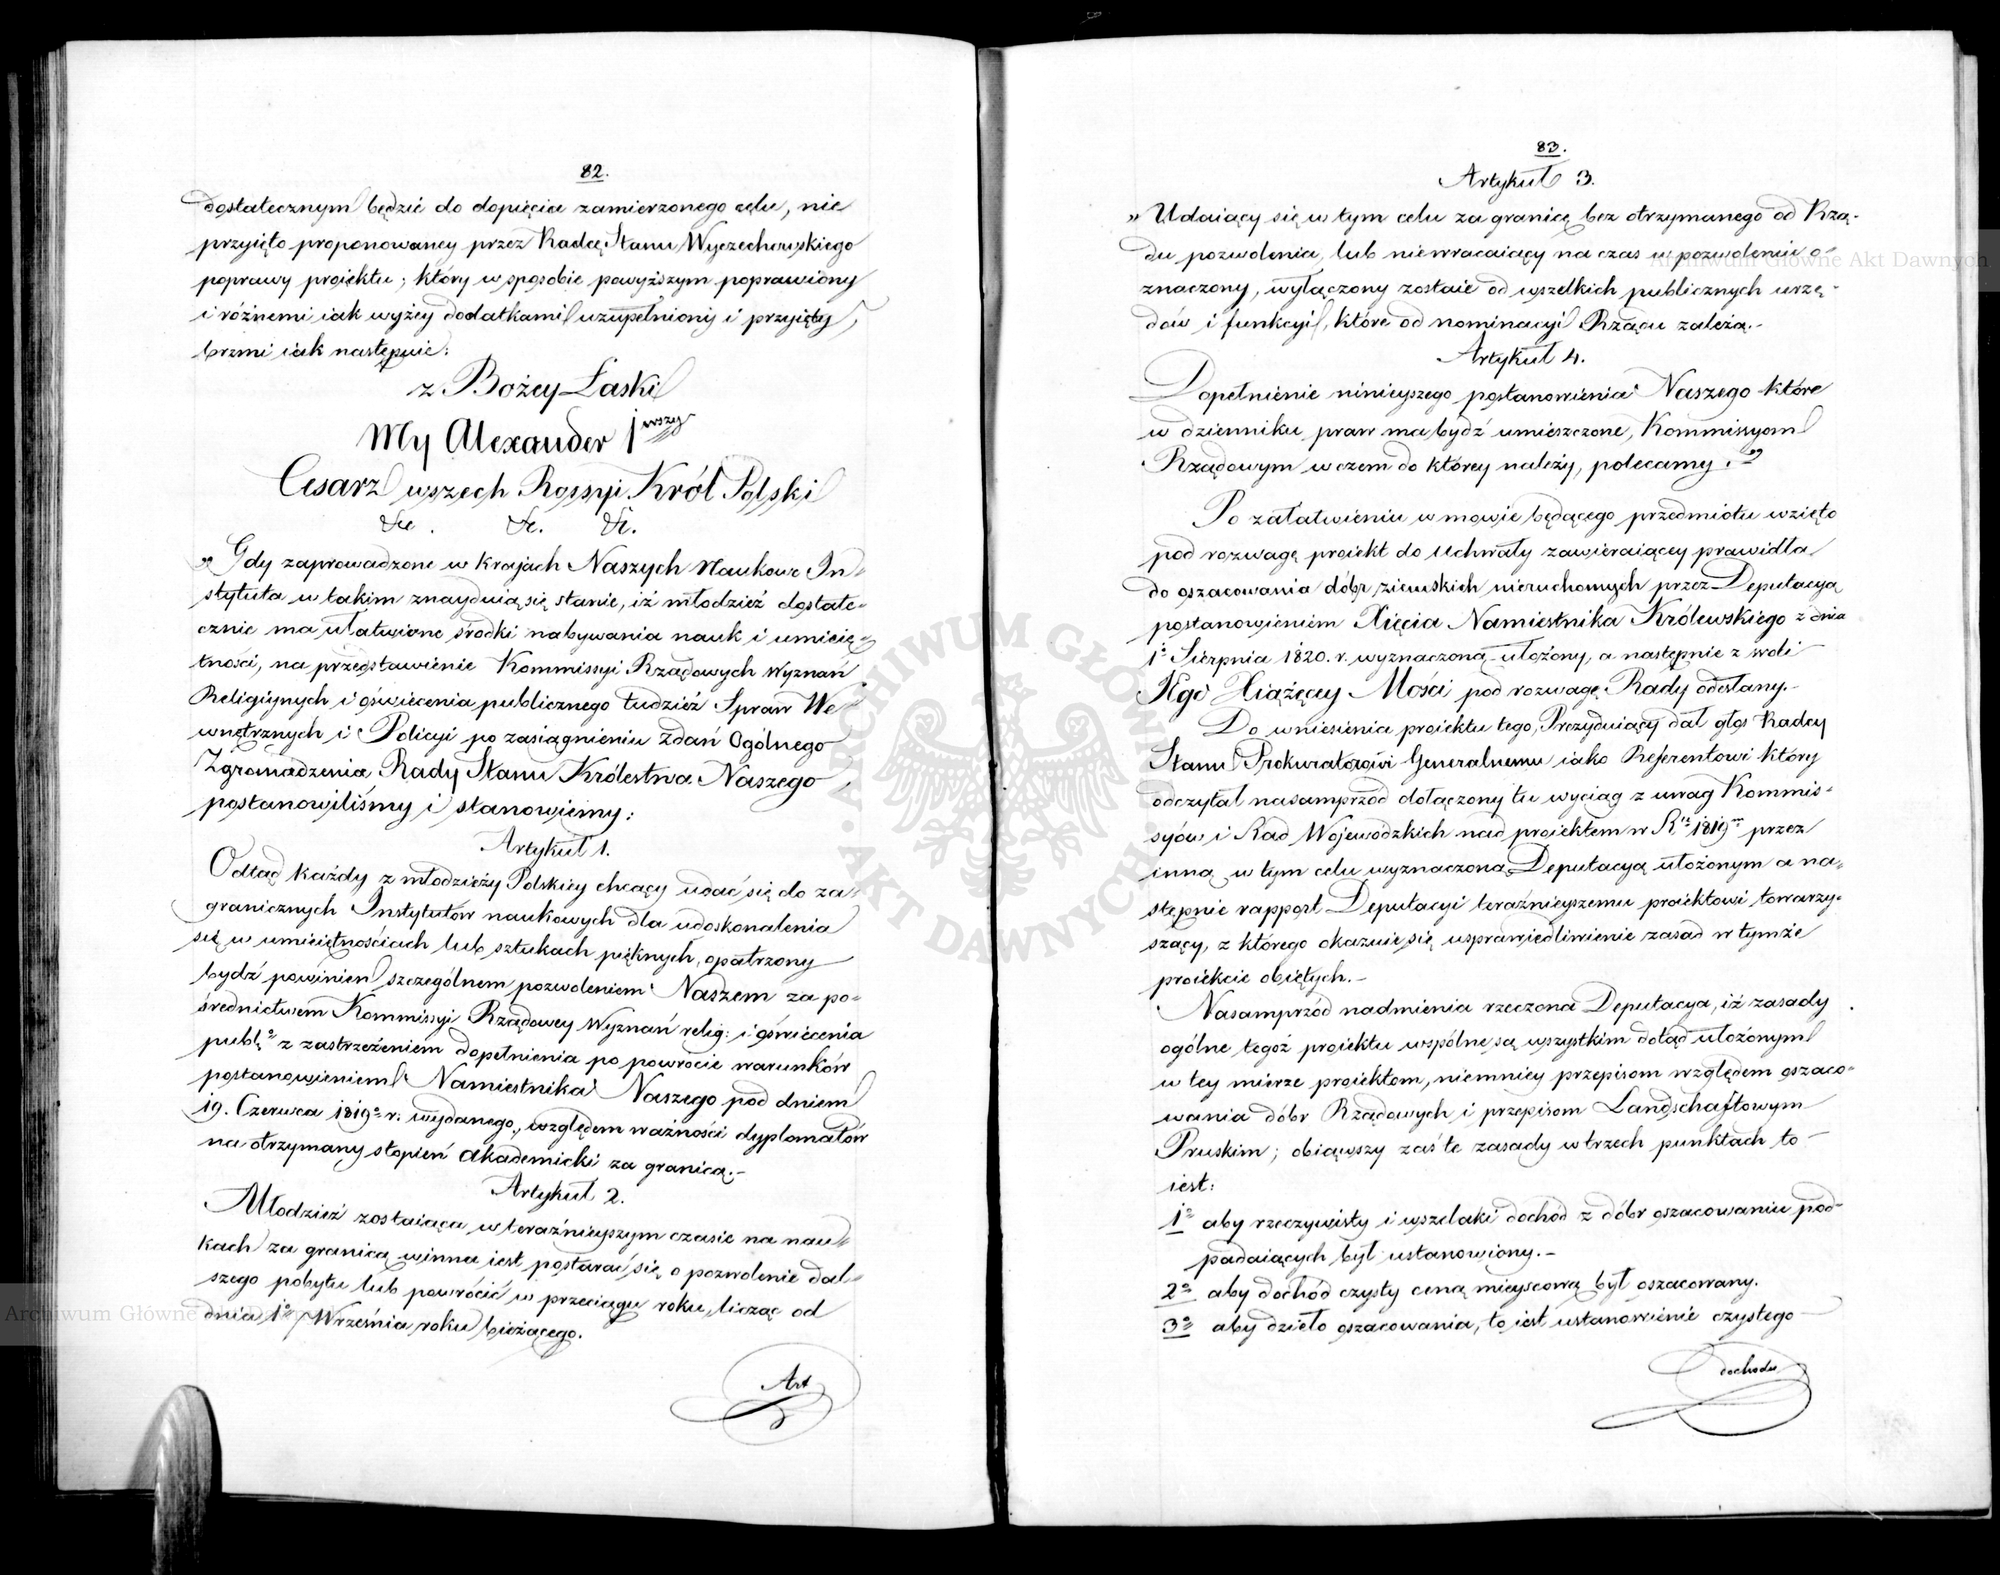 82.
dostatecznym będzie do dopięcia zamierzonego celu, nie
przyięto proponowaney przez Radcę Stanu Wyczechowskiego
poprawy proiektu; który w sposobie powyższym poprawiony
i różnemi iak wyżey dodatkami uzupełniony i przyięty,
brzmi iak następuie:
z Bożey Łaski
My Alexander 1wszy
Cesarz wszech Rossyi Król Polski
&c. &c. &c.
„Gdy zaprowadzone w krajach Naszych Naukowe In-
stytuta w takim znayduią się stanie, iż młodzież dostate-
cznie ma ułatwione środki nabywania nauk i umieię-
tności, na przedstawienie Kommissyi Rządowych Wyznań
Religiynych i oświecenia publicznego tudzież Spraw We-
wnętrznych i Policyi po zasiągnieniu Zdań Ogólnego
Zgromadzenia Rady Stanu Królestwa Naszego
postanowiliśmy i stanowiemy:
Artykuł 1.
Odtąd każdy z młodzieży Polskiey chcący udać się do za-
granicznych Instytutów naukowych dla udoskonalenia
się w umieiętnościach lub sztukach pięknych, opatrzony
bydź powinien szczególnem pozwoleniem Naszem za po-
średnictwem Kommissyi Rządowey Wyznań relig: i oświecenia
publ: z zastrzeżeniem dopełnienia po powrocie warunków
postanowieniem Namiestnika Naszego pod dniem
19. Czerwca 1819o r. wydanego, względem ważności dyplomatów
na otrzymany stopień akademicki za granicą.-
Artykuł 2.
Młodzież zostaiąca w teraźnieyszym czasie na nau-
kach za granicą winna iest postarać się o pozwolenie dal-
szego pobytu lub powrócić w przeciągu roku, licząc od
dnia 1o Września roku bieżącego.
Art
83.
Artykuł 3.
„Udaiący się w tym celu za granicę bez otrzymanego od Rzą-
du pozwolenia, lub niewracaiący na czas w pozwoleniu o-
znaczony, wyłączony zostaie od wszelkich publicznych urzę-
dów i funkcyi, które od nominacyi Rządu zależą.-
Artykuł 4.
Dopełnienie ninieyszego postanowienia Naszego które
w dzienniku praw ma bydź umieszczone, Kommissyom
Rządowym w czem do którey należy, polecamy."
Po załatwieniu w mowie będącego przedmiotu wzięto
pod rozwagę proiekt do Uchwały zawieraiącey prawidła
do oszacowania dóbr ziemskich nieruchomych przez Deputacyą
postanowieniem Xięcia Namiestnika Królewskiego z dnia
1o Sierpnia 1820. r. wyznaczoną ułożony, a następnie z woli
Jego Xiążęcey Mości pod rozwagę Rady odesłany.-
Do wniesienia proiektu tego, Prezyduiący dał głos Radcy
Stanu Prokuratorowi Generalnemu iako Referentowi który
odczytał nasamprzód dołączony tu wyciąg z uwag Kommis-
syów i Rad Wojewódzkich nad proiektem w Rku 1819m przez
inną w tym celu wyznaczoną Deputacyą ułożonym a na-
stępnie rapport Deputacyi teraźnieyszemu proiektowi towarzy-
szący, z którego okazuie się usprawiedliwienie zasad w tymże
proiekcie obiętych.-
Nasamprzód nadmienia rzeczona Deputacya, iż zasady
ogólne tegoż proiektu wspólne są wszystkim dotąd ułożonym
w tey mierze proiektom, niemniey przepisom względem oszaco-
wania dóbr Rządowych i przepisom Landschaftowym
Pruskim; obiąwszy zaś te zasady w trzech punktach to
iest:
1o aby rzeczywisty i wszelaki dochód z dóbr oszacowaniu pod-
padaiących był ustanowiony.-
2o aby dochód czysty ceną mieyscową był oszacowany.
3o aby dzieło oszacowania, to iest ustanowienie czystego
dochodu
ARCHIWUM GŁÓWNE AKT DAWNYCH
Archiwum Główne Akt Dawnych
Archiwum Główne Akt Dawnych